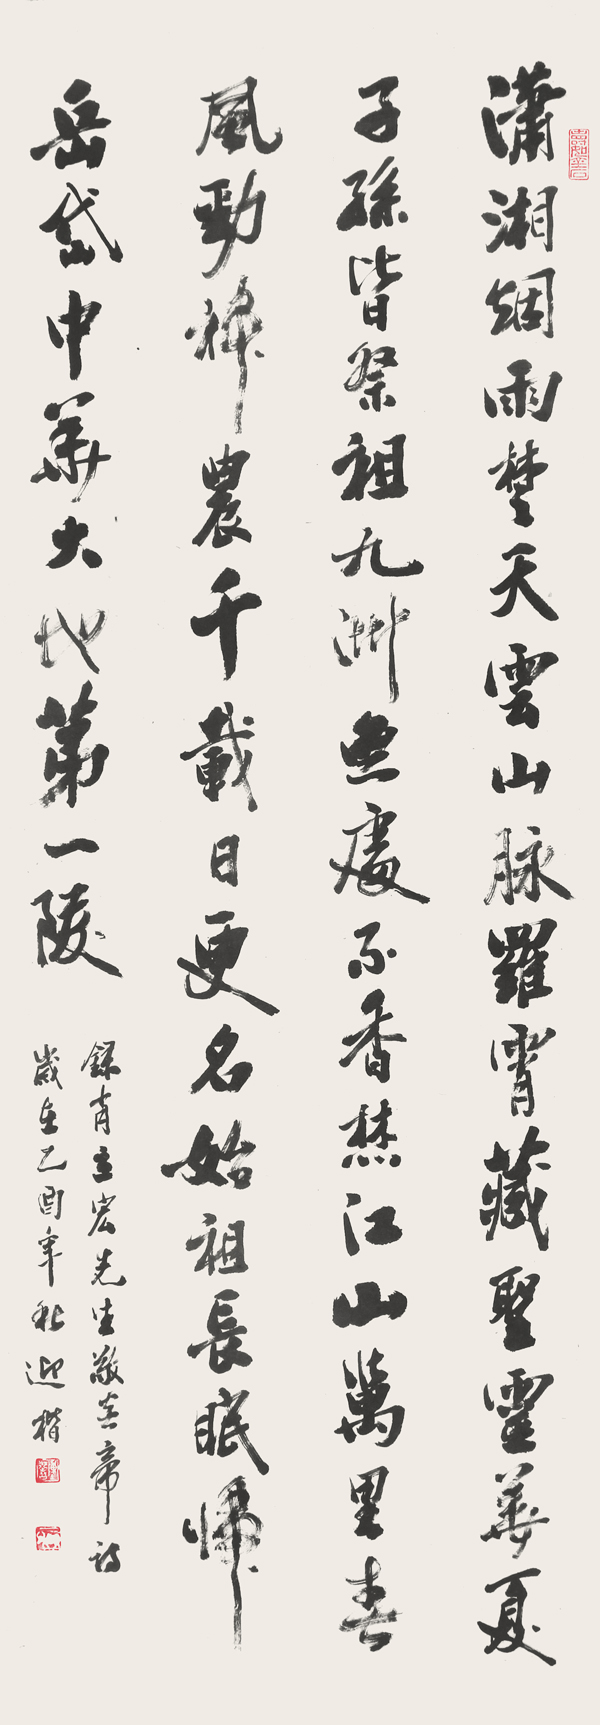 瀟湘烟雨楚天雲山脉羅霄藏聖靈華夏
子孫皆祭祖九州無處不香焚江山萬里春
風勁神農千載日更名始祖長眠歸
岳岱中華大地第一陵
錄肖立宏先生敬炎帝詩
歲在乙酉年秋迎楷